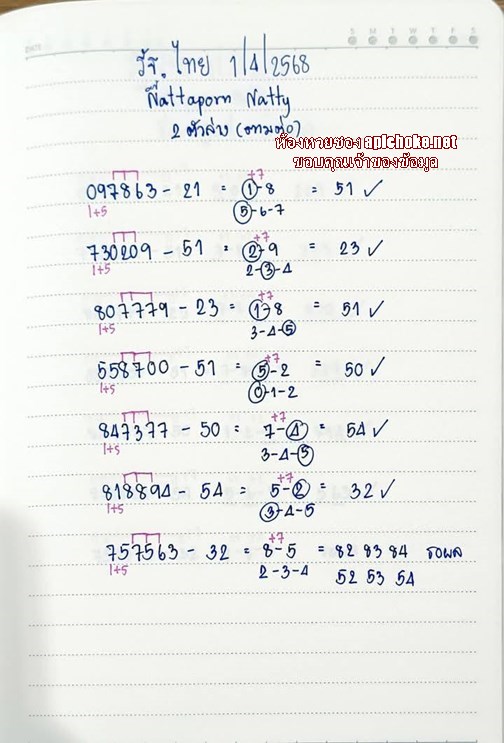 DATE
S M T W T F S
รัฐ. ไทย 1/4/2568
Nattaporn Natty
2 ตัวล่าง (ตามต่อ)
ห้องหวยของ apichoke.net
ขอบคุณเจ้าของข้อมูล
+7
097863 - 21 = 1-8 = 51 ✓
1+5 5-6-7
+7
730209 - 51 = 2-9 = 23 ✓
1+5 2-3-4
+7
807779 - 23 = 1-8 = 51 ✓
1+5 3-4-5
+7
558700 - 51 = 5-2 = 50 ✓
1+5 0-1-2
+7
847377 - 50 = 7-4 = 54 ✓
1+5 3-4-5
+7
818894 - 54 = 5-2 = 32 ✓
1+5 3-4-5
+7
757563 - 32 = 8-5 = 82 83 84 รอผล
1+5 2-3-4 52 53 54